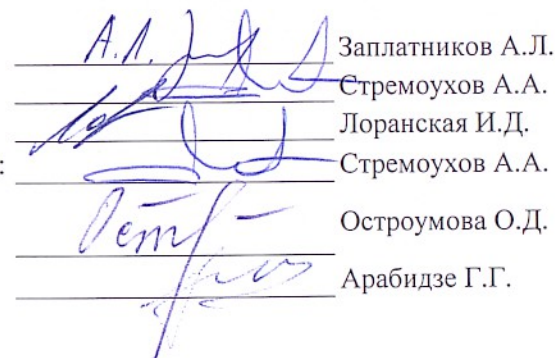 А.Л. Заплатников А.Л.
Стремоухов А.А.
Лоранская И.Д.
: Стремоухов А.А.
Остроумова О.Д.
Арабидзе Г.Г.